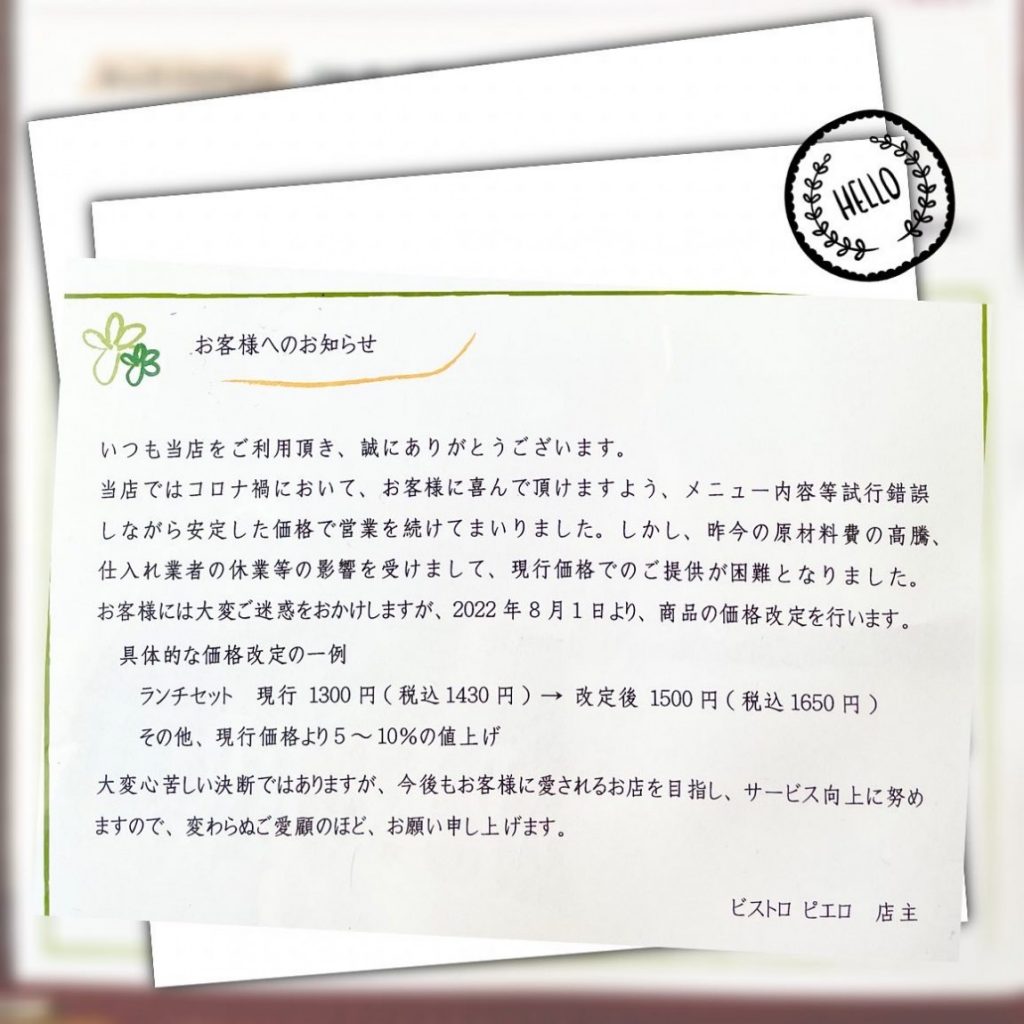 HELLO
お客様へのお知らせ
いつも当店をご利用頂き、誠にありがとうございます。
当店ではコロナ禍において、お客様に喜んで頂けますよう、メニュー内容等試行錯誤
しながら安定した価格で営業を続けてまいりました。しかし、昨今の原材料費の高騰、
仕入れ業者の休業等の影響を受けまして、現行価格でのご提供が困難となりました。
お客様には大変ご迷惑をおかけしますが、2022年8月1日より、商品の価格改定を行います。
具体的な価格改定の一例
ランチセット　現行 1300円(税込1430円)→ 改定後 1500円(税込1650円)
その他、現行価格より5～10%の値上げ
大変心苦しい決断ではありますが、今後もお客様に愛されるお店を目指し、サービス向上に努め
ますので、変わらぬご愛顧のほど、お願い申し上げます。
ビストロ ピエロ　店主